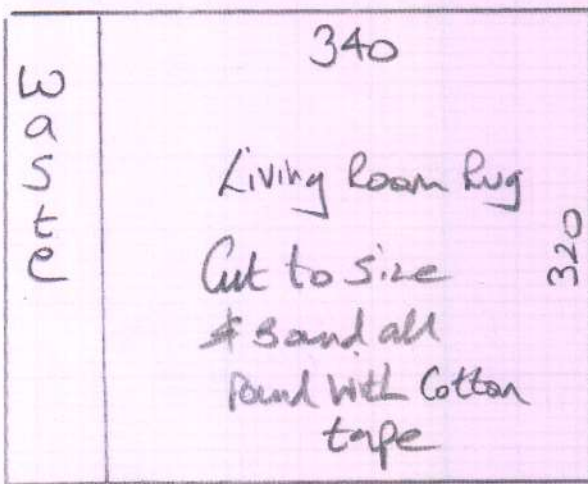 Waste
340
Living Room Rug
320
Cut to size
& Band all
round with Cotton
tape